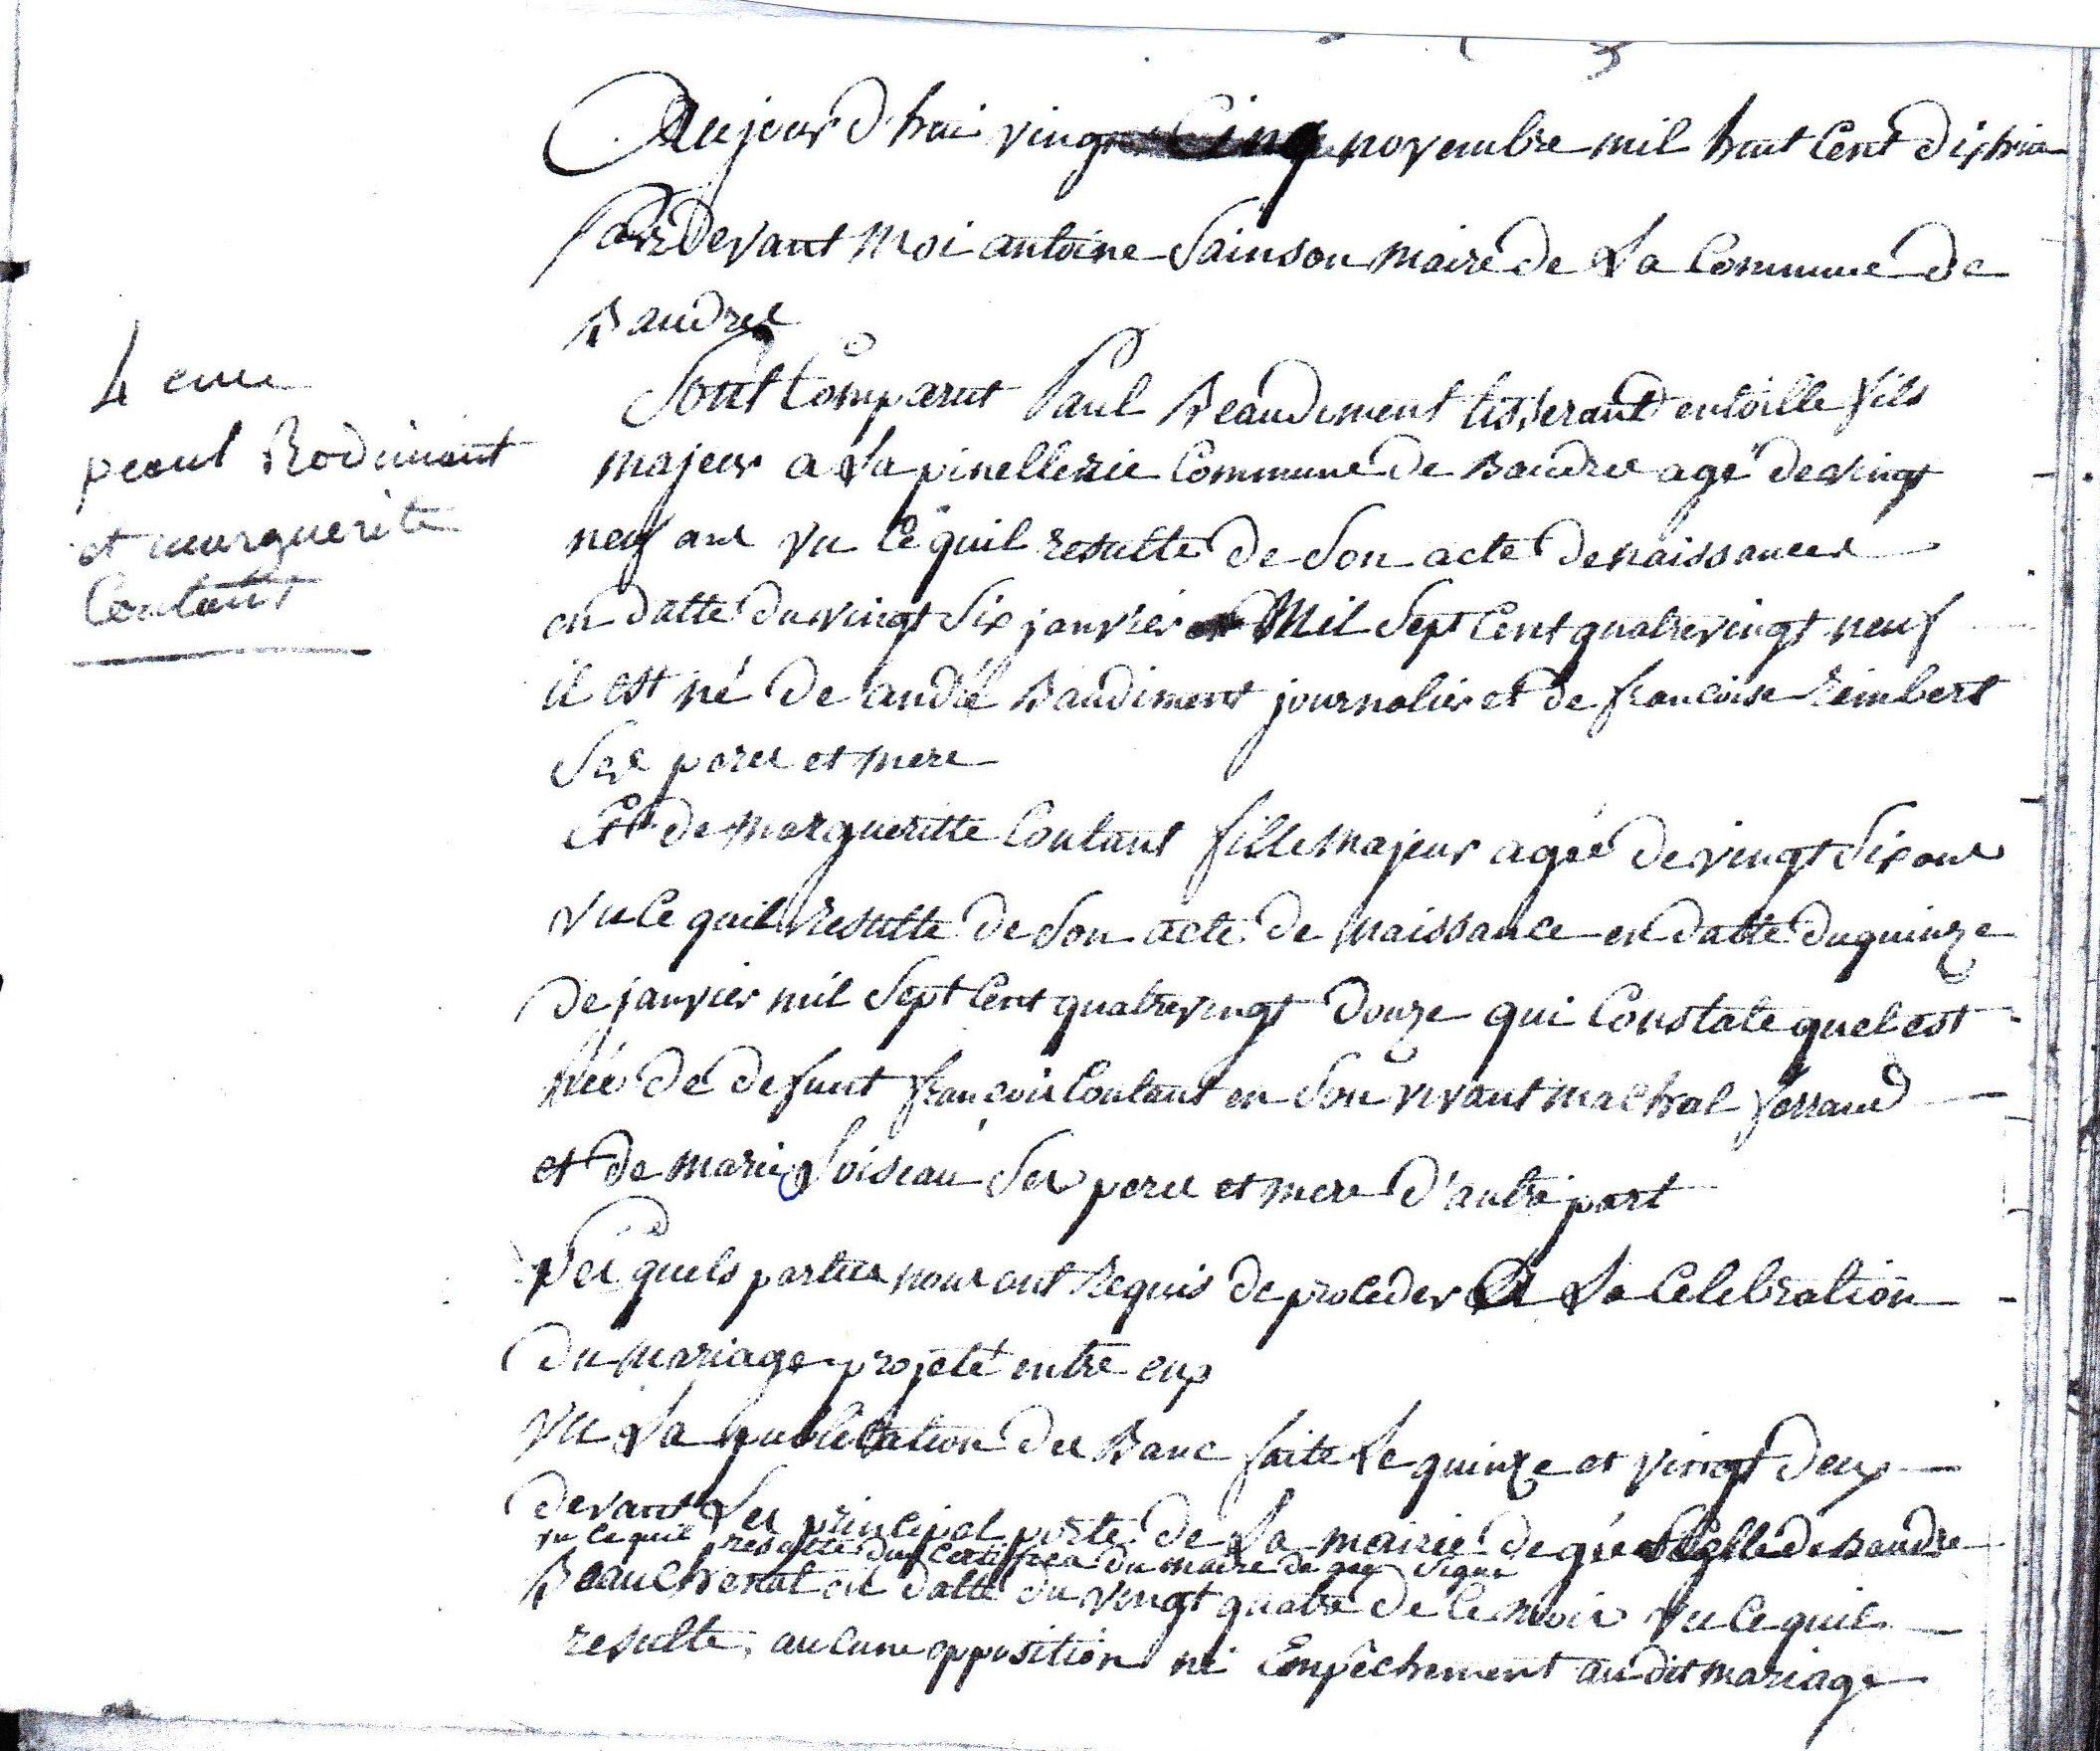 4 eme
peaul Bodimant
et marguerite
Contant
Aujourd hui vingt Cinq novembre mil huit Cent dix huit
Pardevant moi antoine Sainson maire de La Commune de
Baudre
Sont Comparut Paul Beaudiment tisserant entoille fils
majeur a La pinellerie Commune de Baudre agé de vingt
neuf ans vu Ce quil resulte de Son acte de naissances
en datte du vingt Six janvier Mil Sept Cent quatre vingt neuf
il est né de andré Baudiment journalier et de francoise Rimbert
Ses peres et mere
Et de margueritte Contant fille majeur agée de vingt Six ans
vu Ce quil resulte de Son acte de naissance en datte du quinze
de janvier mil Sept Cent quatre vingt Douze qui Constate quel est
née de defunt francois Contant en Son vivant machal ferrand
et de marie Loiseau Ses peres et mere d'autre part
Les quels parties nous ont Requis de proceder A La Celebration
du mariage projeté entre eux
Vu La publication des Banc faite Le quinze et vingt deux
devant Les principal porte de La mairie de gée celle de Baudre
vu Ce quil resulte du Certifica du maire de gée Signé
Beauchenat en datte du vingt quatre de Ce mois vu Ce quil
resulte aucune opposition ni Empêchement au dit mariage